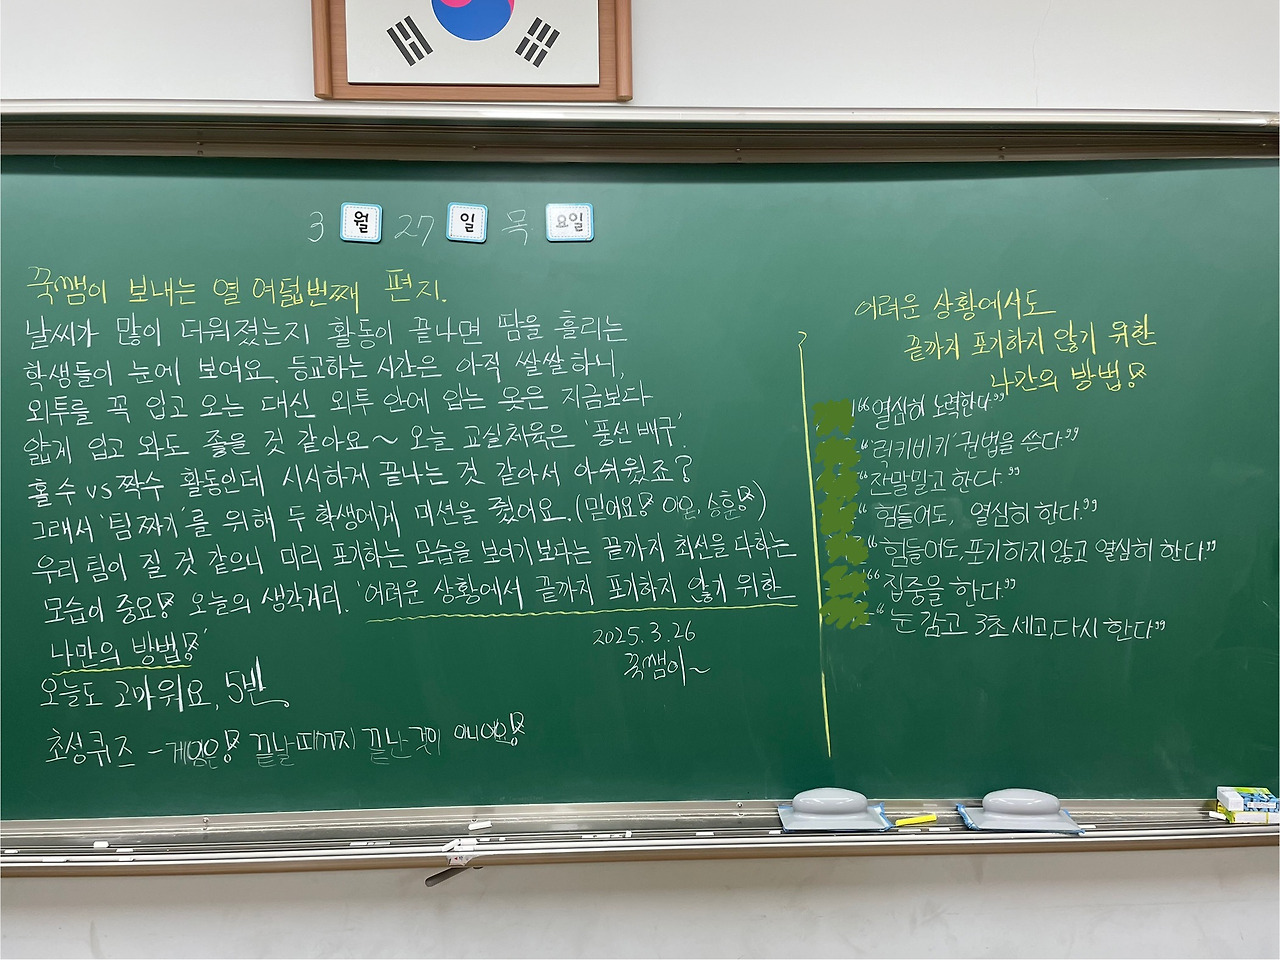 3 월 27 일 목 요일
꾹쌤이 보내는 열 여덟번째 편지.
날씨가 많이 더워졌는지 활동이 끝나면 땀을 흘리는
학생들이 눈에 보여요. 등교하는 시간은 아직 쌀쌀하니,
외투를 꼭 입고 오는 대신 외투 안에 입는 옷은 지금보다
얇게 입고 와도 좋을 것 같아요~ 오늘 교실체육은 '풍선배구'.
홀수 vs 짝수 활동인데 시시하게 끝나는 것 같아서 아쉬웠죠?
그래서 '팀짜기'를 위해 두 학생에게 미션을 줬어요. (믿어요! 이온, 승훈!)
우리 팀이 질 것 같으니 미리 포기하는 모습을 보이기 보다는 끝까지 최선을 다하는
모습이 중요! 오늘의 생각거리. '어려운 상황에서 끝까지 포기하지 않기 위한
나만의 방법!'
2025. 3. 26
꾹쌤이~
오늘도 고마워요, 5반.
초성퀴즈 - 게임은! 끝날때까지 끝난것이 아니에요!
어려운 상황에서도
끝까지 포기하지 않기 위한
나만의 방법!
"열심히 노력한다."
"'럭키비키' 권법을 쓴다."
"잔말말고 한다."
"힘들어도, 열심히 한다."
"힘들어도, 포기하지 않고 열심히 한다."
"집중을 한다."
"눈 감고 3초 세고, 다시 한다."